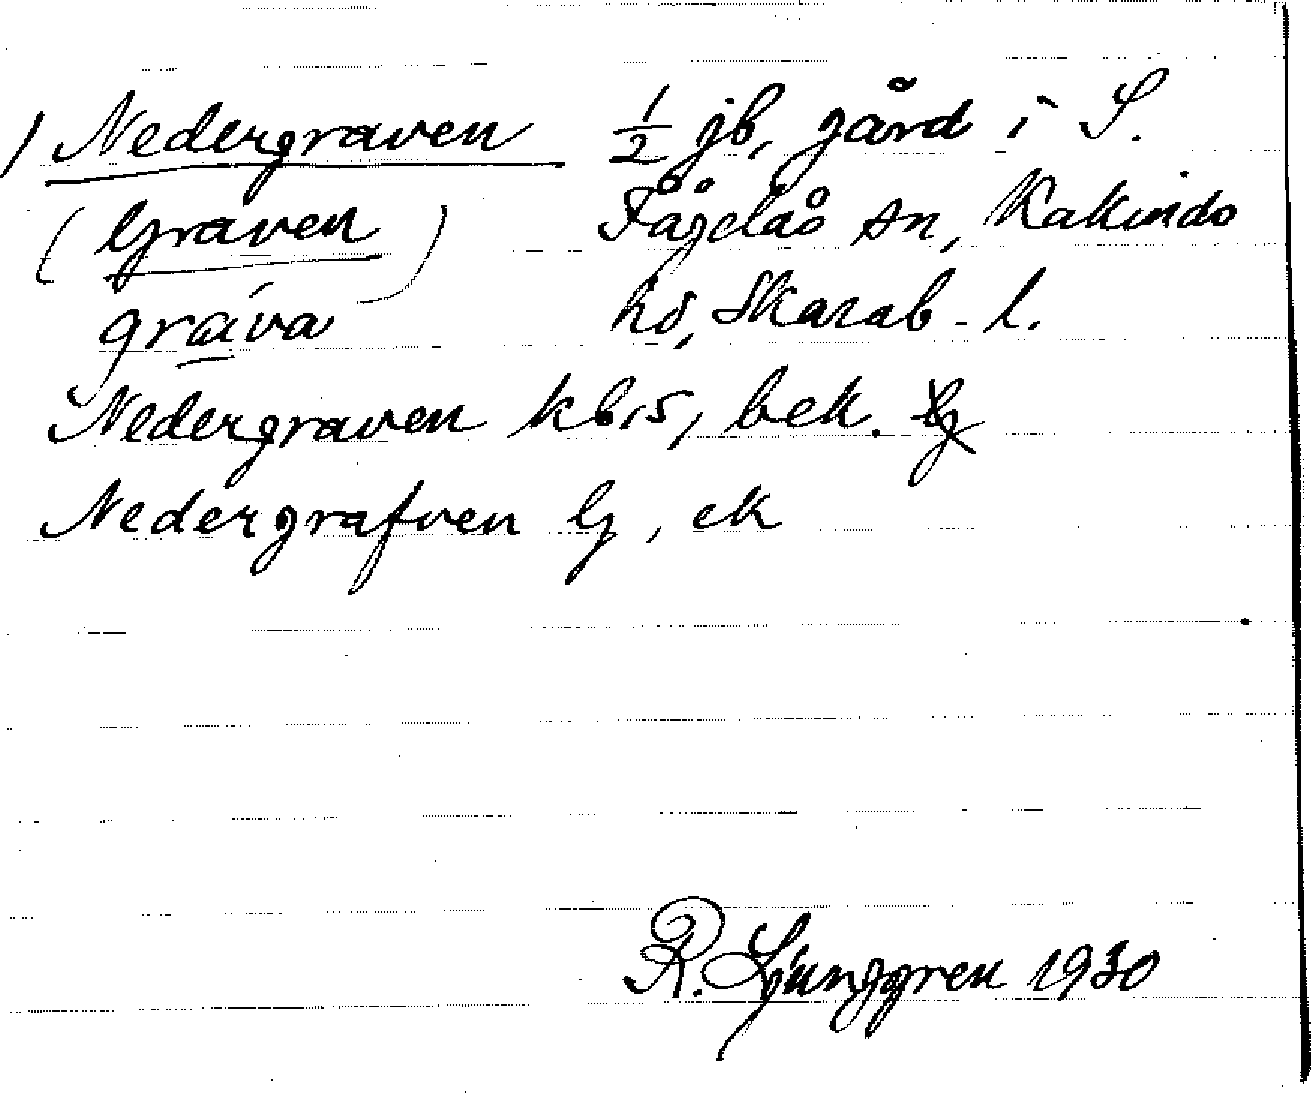 1) Nedergraven ½ jb, gård i S.
(Graven) Fågelås sn, Kakinds
gráva hd, Skarab. l.
Nedergraven kb 15, bek.
Nedergrafven G, ek
R. Ljunggren 1930